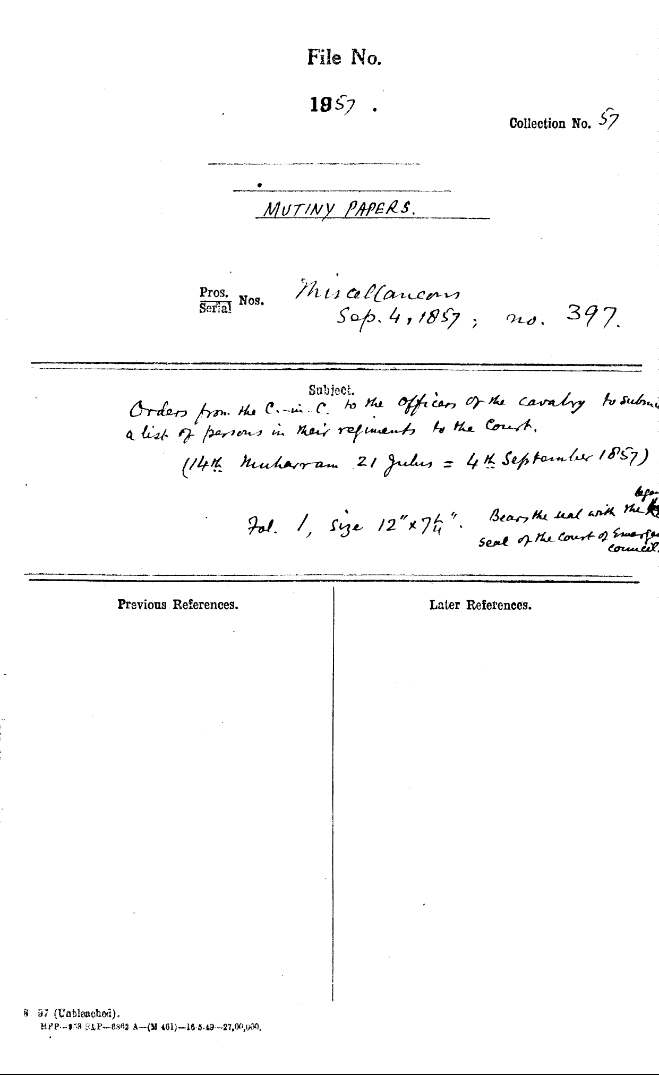 File No.
1857 .
Collection No. 57
MUTINY PAPERS.
Pros. Nos.
Serial
Miscellaneous
Sep. 4, 1857 ; no. 397.
Subject.
Orders from the C.-in-C. to the officers of the cavalry to
a list of persons in their regiments to the Court.
(14th Muharram 21 Julus = 4th September 1857)
Fol. 1, Size 12" x 7¼". Bears the seal with the
seal of the Court of
council.
Previous References.
Later References.
S 57 (Unbleached).
16-5-49—27,00,000.